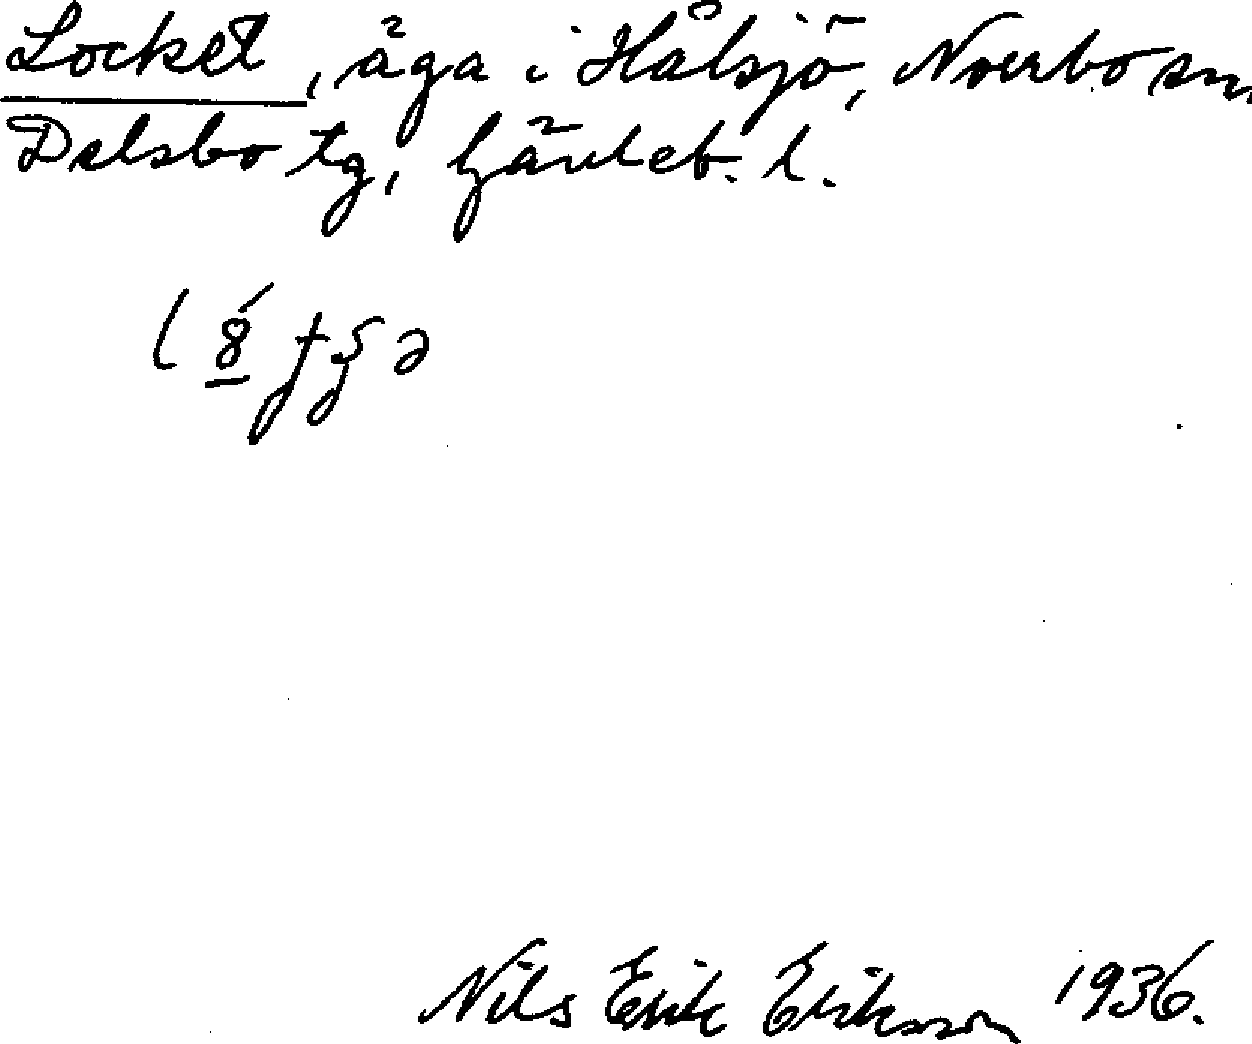 Locket, äga i Hålsjö, Norrbo sn,
Delsbo tg, Gävleb. l.
Nils Erik Eriksson 1936.